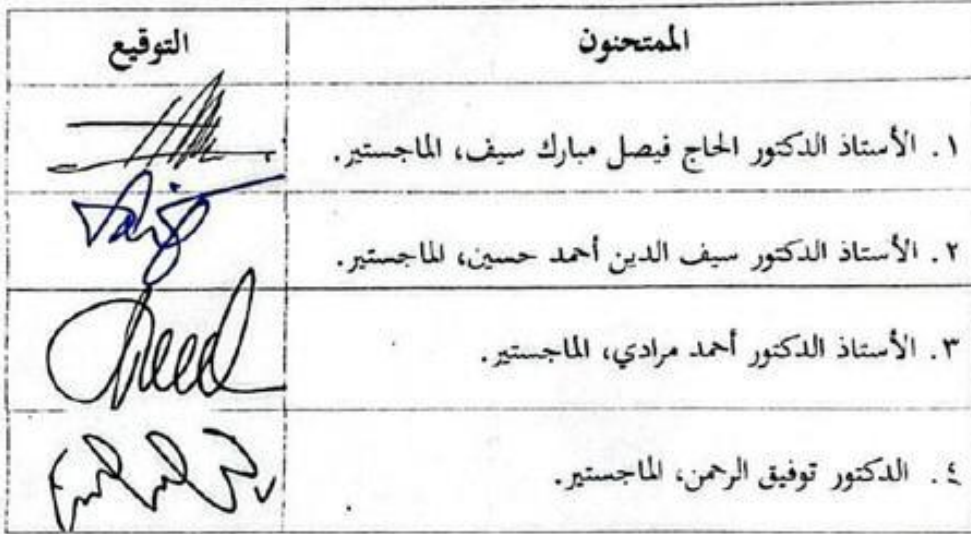 الممتحنون التوقيع
١. الأستاذ الدكتور الحاج فيصل مبارك سيف، الماجستير.
٢. الأستاذ الدكتور سيف الدين أحمد حسين، الماجستير.
٣. الأستاذ الدكتور أحمد مرادي، الماجستير.
٤. الدكتور توفيق الرحمن، الماجستير.